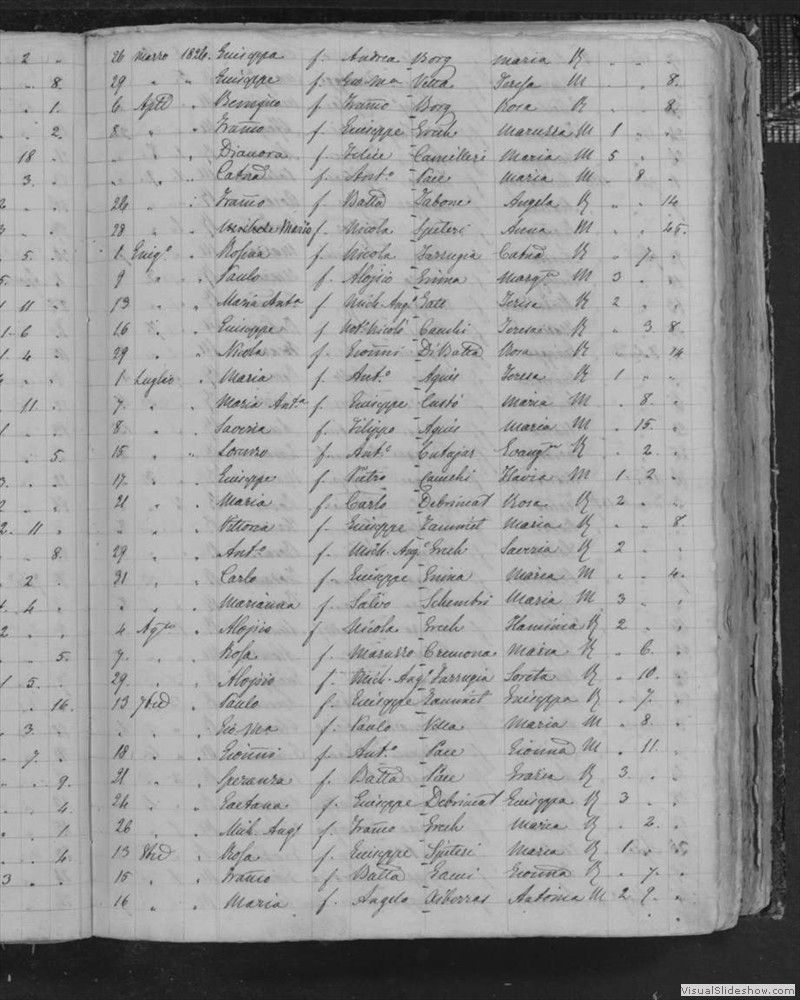 26 Marzo 1826. Giuseppa f. Andrea Borg Maria R . . .
29 " " Giuseppe f. Gio Ma Vella Teresa M . . 8.
6 Aple " Benigno f. Franco Borg Rosa R . . 8.
8 " " Franco f. Giuseppe Grech Maruzza M 1 . .
. " . Dianora f. Felice Camilleri Maria M 5 . .
. " . Catna f. Anto Pace Maria M . 8 .
26 " . Franco f. Batta Tabone Angela R . . 14
28 " . Mario f. Nicola Spiteri Anna M . . 45.
1 Giugo . Rosina f. Nicola Farrugia Catna R . 7. .
9 " . Paulo f. Alojsio M 3 . .
13 . . Maria Anta f. Mich. Ango Teresa R 2 . .
16 . . Giuseppe f. Noto Nicolò Cauchi Teresa R . 3 8
29 . . Nicola f. Gionni DiBatta Rosa R . . 14
1 Luglio . Maria f. Anto Agius Teresa R 1 . .
7. . . Maria Anta f. Giuseppe Custò Maria M . 8 .
8. . . Saveria f. Filippo Agius Maria M . 15. .
15 . . Lorenzo f. Anto Cutajar Evangta R . 2. .
17. . . Giuseppe f. Pietro Cauchi Flavia M 1 2 .
21 . . Maria f. Carlo Debrincat Rosa R 2 . .
. . . Vittoria f. Giuseppe Zammit Maria R . . 8.
29 . . Anto f. Mich. Ango Grech Saveria R 2 . .
31 . . Carlo f. Giuseppe Maria M . . 4.
. . . Marianna f. Salvo Schembri Maria M 3 . .
4 Agto . Alojsio f. Nicola Grech Flaminia R 2 . .
7. . . Rosa f. Maruzzo Cremona Maria R . 6. .
29. . . Alojsio f. Mich. Ango Farrugia Loreta R . 10. .
13 7bre . Paulo f. Giuseppe Zammit Giuseppa R . 7. .
. . . Gio Ma f. Paulo Vella Maria M . 8. .
18 . . Gionni f. Anto Pace Gionna M . 11. .
21 . . Speranza f. Batta Pace Grazia R 3 . .
24 . . Gaetana f. Giuseppe Debrincat Giuseppa R 3 . .
26 . . Mich. Ango f. Franco Grech Maria R . 2. .
13 8bre . Rosa f. Giuseppe Spiteri Maria R 1. . .
15 . . Franco f. Batta Gauci Gionna R . 7. .
16 . . Maria f. Angelo Asberras Antonia M 2 9. .
VisualSlideshow.com